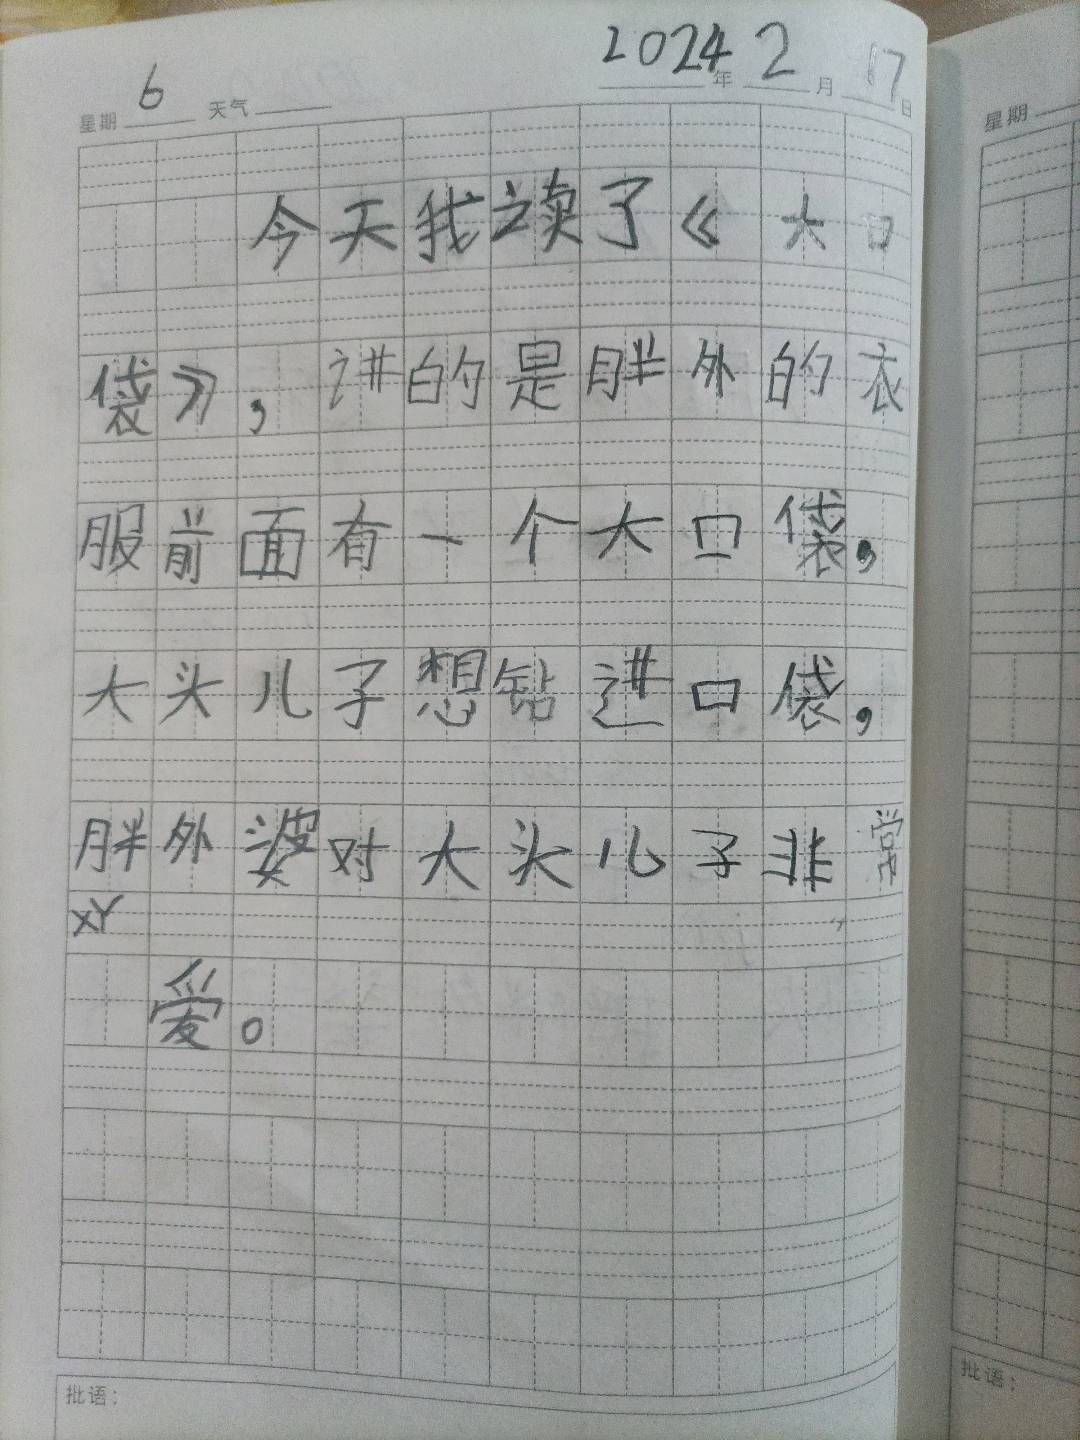 2024年2月17日
星期6 天气
今天我读了《大口
袋》，讲的是胖外的衣
服前面有一个大口袋，
大头儿子想钻进口袋，
胖外婆对大头儿子非常
xY
爱。
批语：
星期
批语：